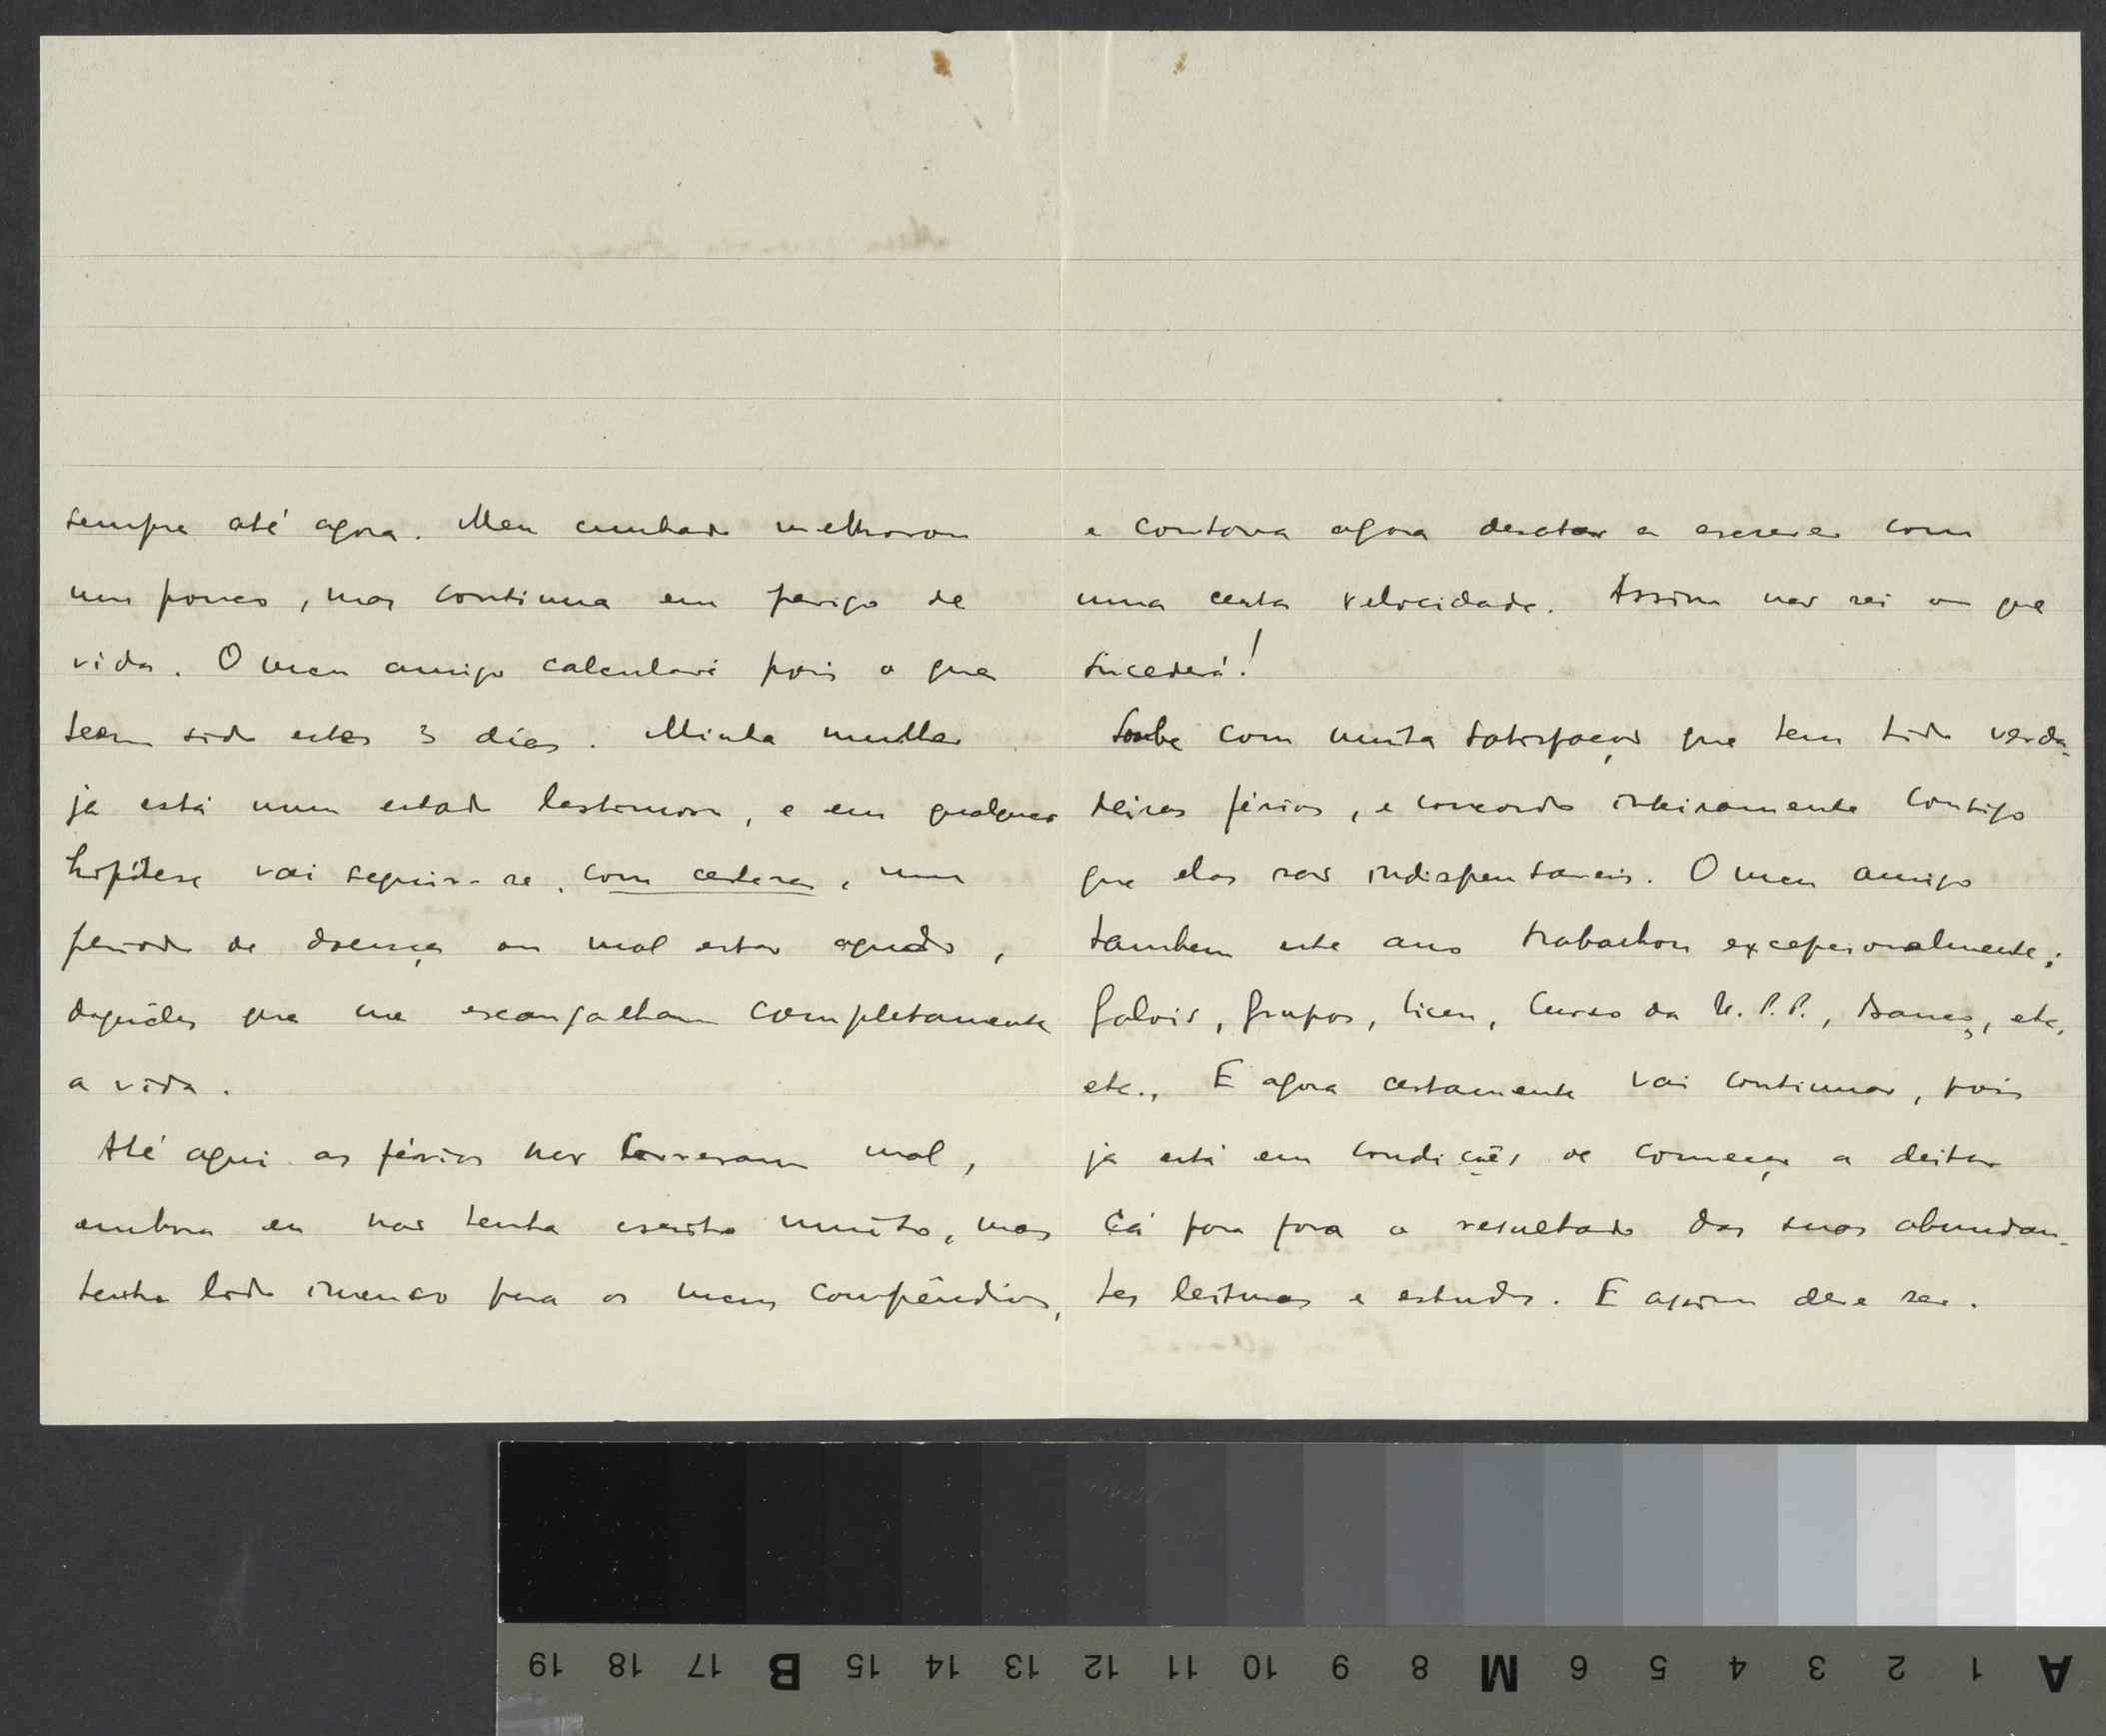 sempre até agora. Meu cunhado melhorou
um pouco, mas continua em perigo de
vida. O meu amigo calculará pois o que
teem sido estes 3 dias. Minha mulher
já está num estado lastimoso, e em qualquer
hipótese vai seguir-se, com certeza, um
periodo de doença ou mal estar agudo,
daquêles que me escangalham completamente
a vida.
Até aqui as férias não correram mal,
embora eu não tenha escrito muito, mas
tenho lido imenso para os meus compêndios,
e contava agora desatar a escrever com
uma certa velocidade. Assim não sei o que
sucederá!
Soube com muita satisfação que tem tido verda-
deiras férias, e concordo inteiramente contigo
que elas são indispensaveis. O meu amigo
tambem este ano trabalhou excepcionalmente:
Galois, grupos, liceu, Curso da U.P.P., Banco, etc,
etc., E agora certamente vai continuar, pois
já está em condições de começar a deitar
cá para fora o resultado das suas abundan-
tes leituras e estudos. E assim deve ser.
19 18 17 B 15 14 13 12 11 10 9 8 M 6 5 4 3 2 1 A